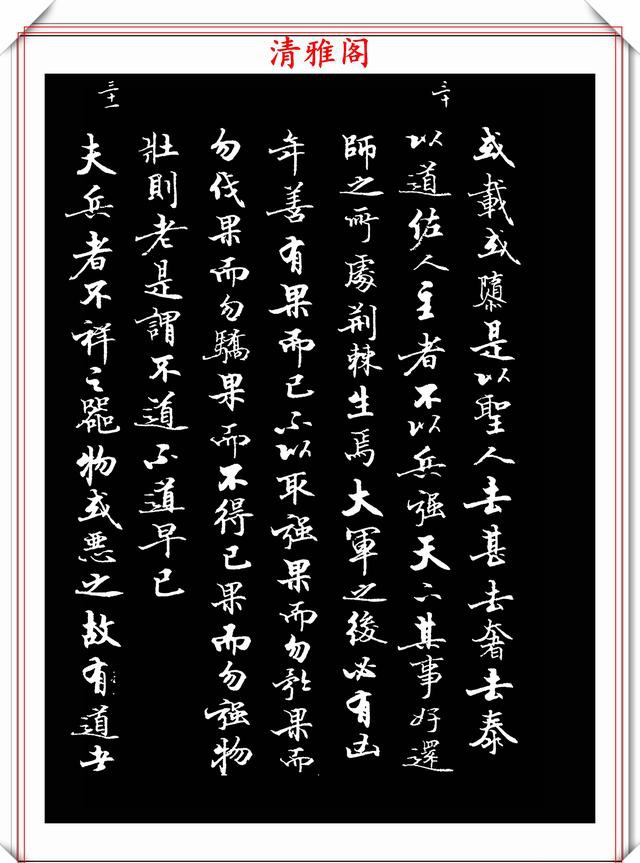 清雅阁
或載或隳是以聖人去甚去奢去泰
三十
以道佐人主者不以兵强天下其事好還
師之所處荆棘生焉大軍之後必有凶
年善有果而已不以取强果而勿矜果而
勿伐果而勿驕果而不得已果而勿强物
壯則老是謂不道不道早已
三十一
夫兵者不祥之器物或惡之故有道者